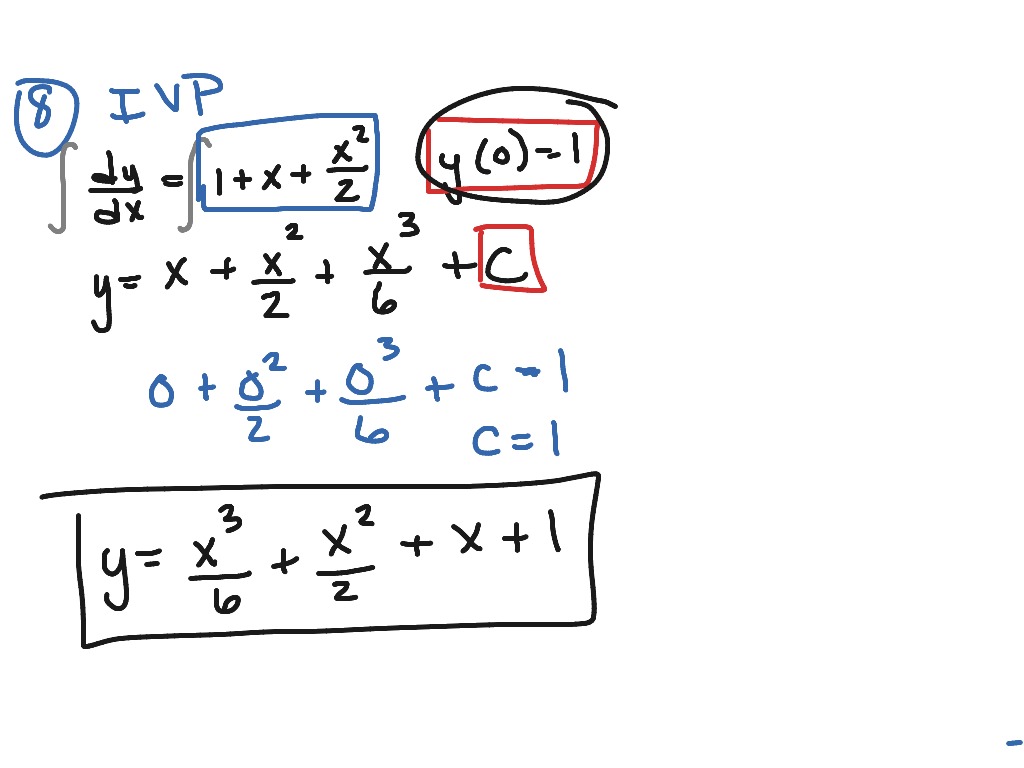 8 IVP
∫ dy/dx = ∫ 1 + x + x²/2 y(0) = 1
y = x + x²/2 + x³/6 + C
0 + 0²/2 + 0³/6 + C = 1
C = 1
y = x³/6 + x²/2 + x + 1